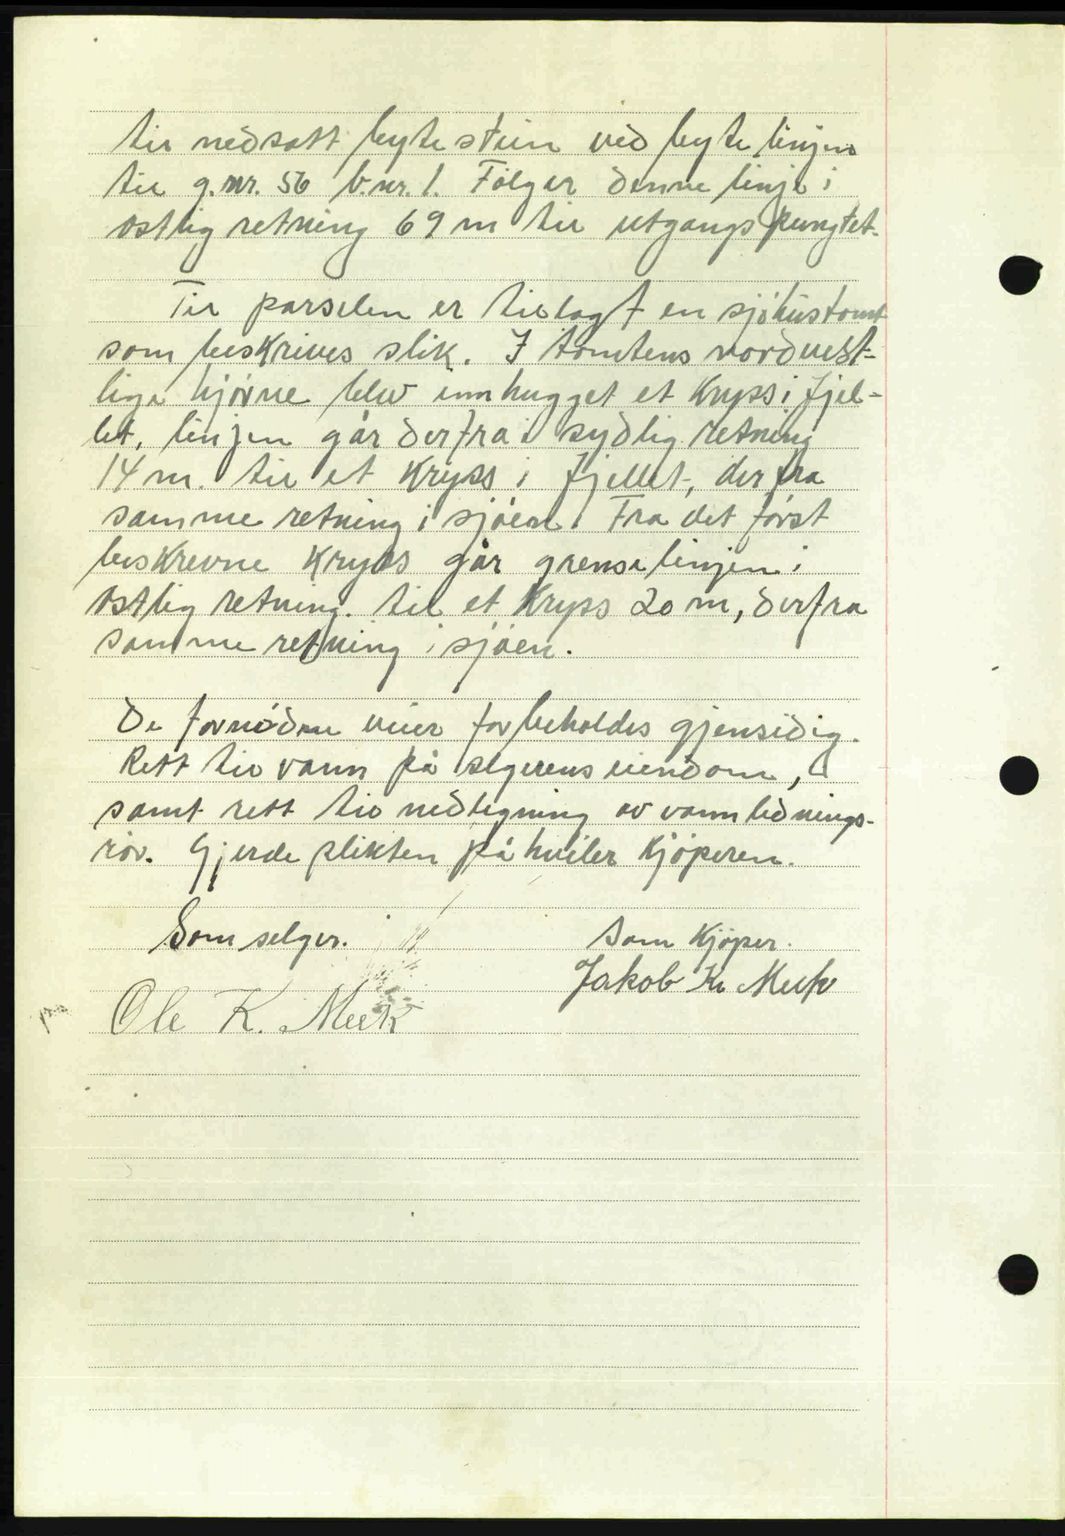 til nedsatt bytestein ved bytelinjen
til g.nr. 56 b.nr. 1. Følger denne linje i
østlig retning 69 m til utgangspungtet.
Til parselen er tillagt en sjøhustomt
som beskrives slik. I tomtens nordvest-
lige hjørne blev innhugget et kryss i fjel-
let, linjen går derfra i sydlig retning
14 m. til et kryss i fjellet, derfra
samme retning i sjøen. Fra det først
beskrevne kryss går grenselinjen i
østlig retning. til et kryss 20 m, derfra
samme retning i sjøen.
De fornødne veier forbeholdes gjensidig.
Rett til vann på selgerens eiendom,
samt rett til nedlegning av vannlednings-
rør. Gjerdeplikten påhviler kjøperen.
Som selger. Som Kjøper.
Jakob K. Meek
Ole K. Meek